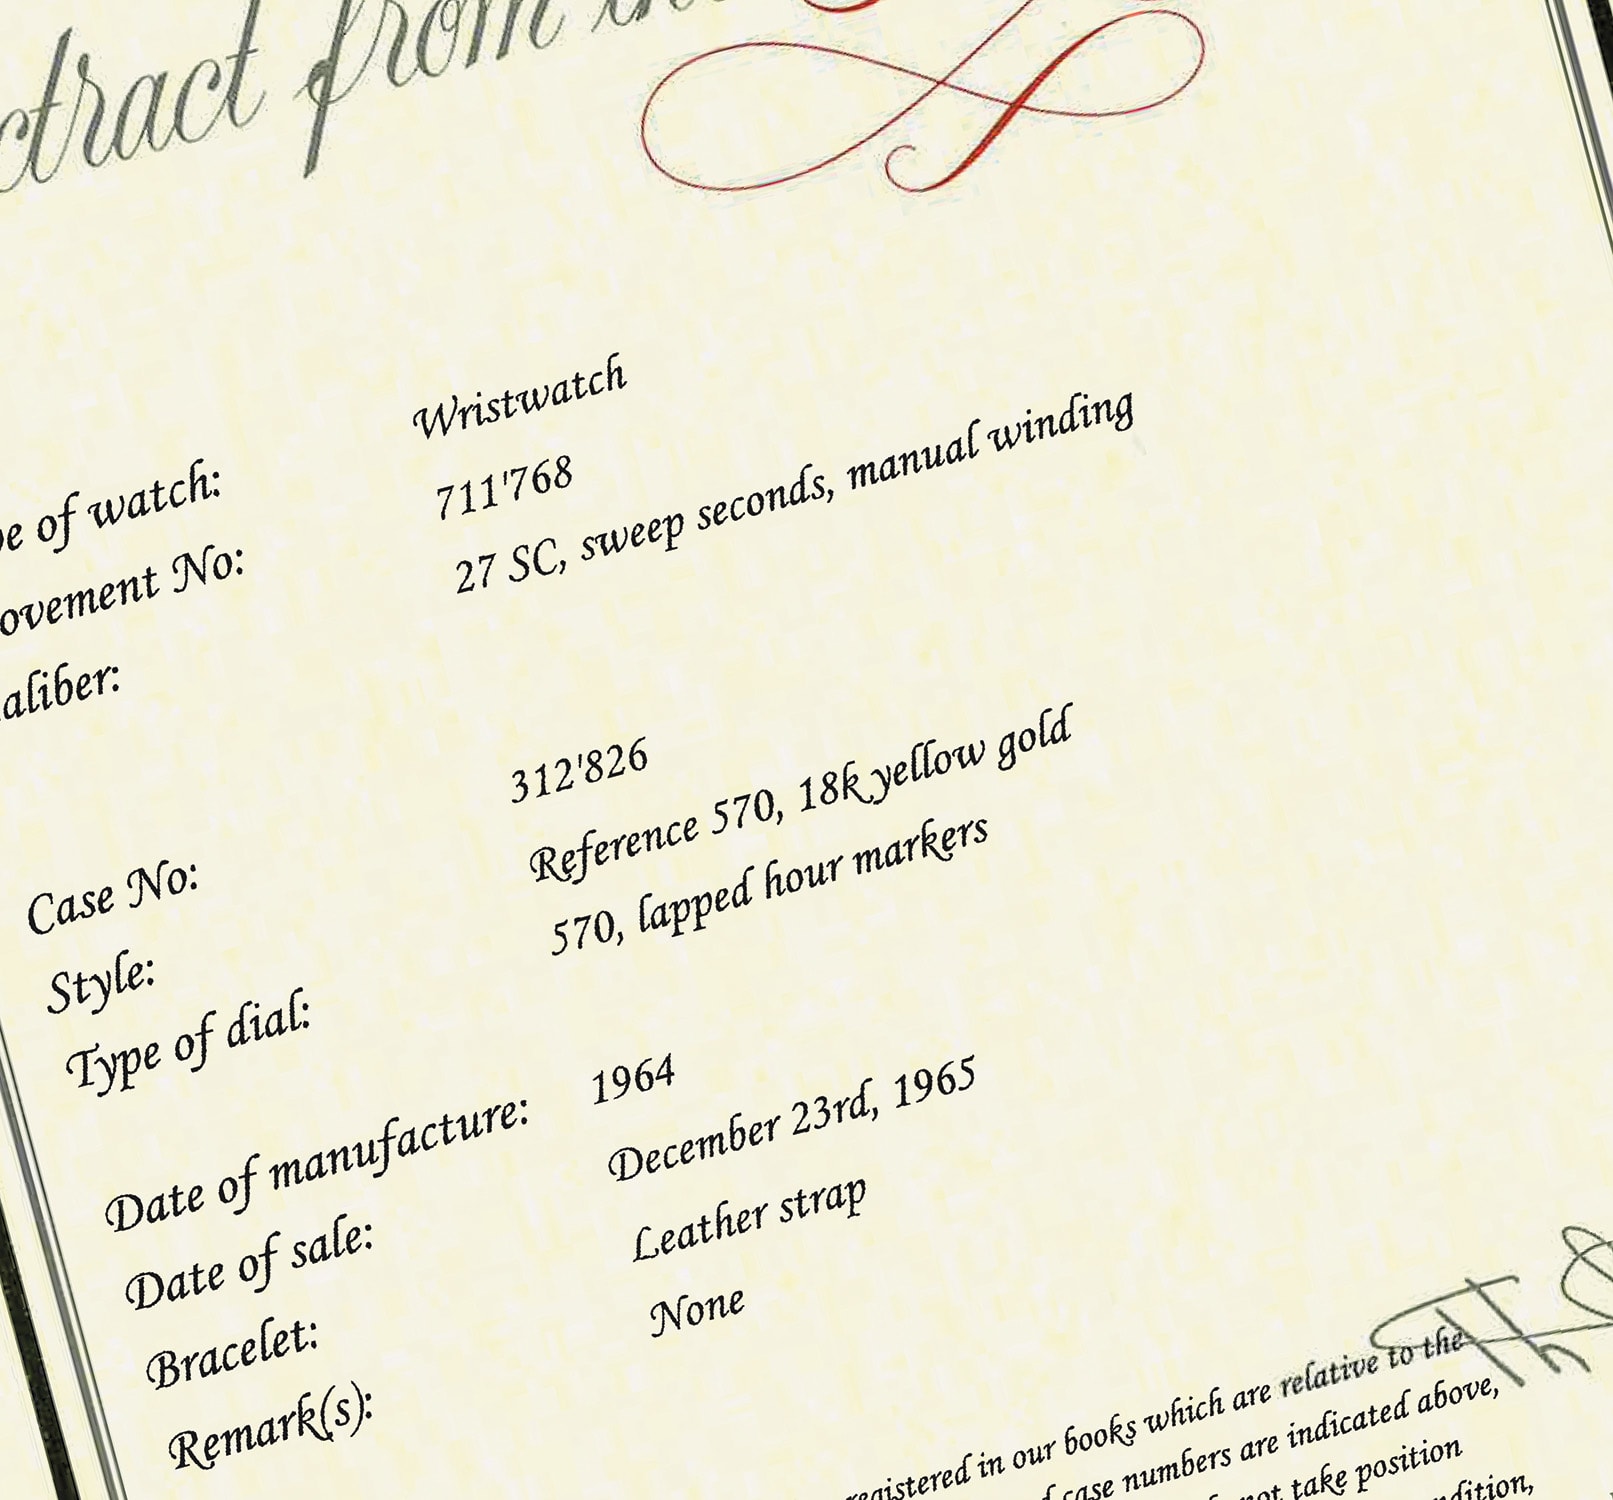 ctract from the
pe of watch: Wristwatch
ovement No: 711'768
aliber: 27 SC, sweep seconds, manual winding
Case No: 312'826
Style: Reference 570, 18k yellow gold
Type of dial: 570, lapped hour markers
Date of manufacture: 1964
Date of sale: December 23rd, 1965
Bracelet: Leather strap
Remark(s): None
registered in our books which are relative to the
case numbers are indicated above,
not take position
ndition,